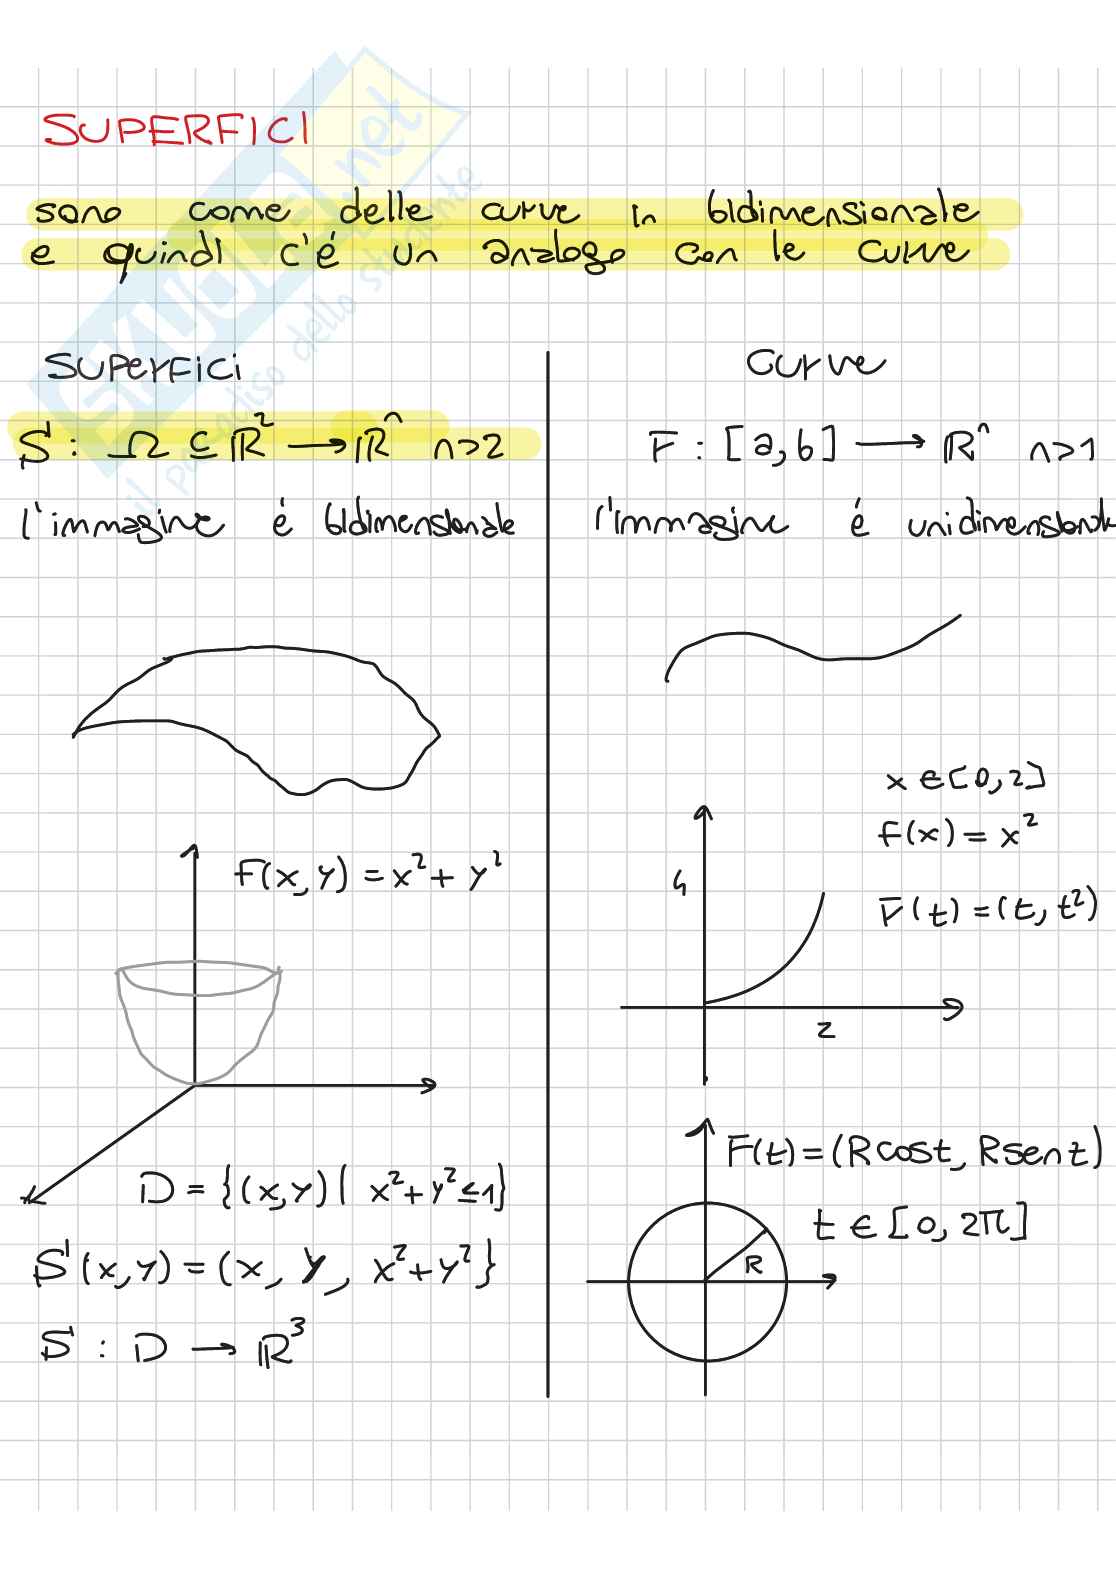 SUPERFICI
sono come delle curve in bidimensionale
e quindi c'é un analogo con le curve
Superfici
S : Ω ⊆ ℝ² → ℝⁿ n>2
l'immagine é bidimensionale
F(x,y) = x² + y²
D = {(x,y) | x²+y² ≤ 1}
S(x,y) = (x, y, x²+y²}
S : D → ℝ³
Curve
r̄ : [a,b] → ℝⁿ n>1
l'immagine é unidimensionale
x ∈ [0,2]
f(x) = x²
4
r̄(t) = (t, t²)
2
r̄(t) = (Rcost, Rsent)
t ∈ [0, 2π]
R
SKUOLA.net
il paradiso dello studente